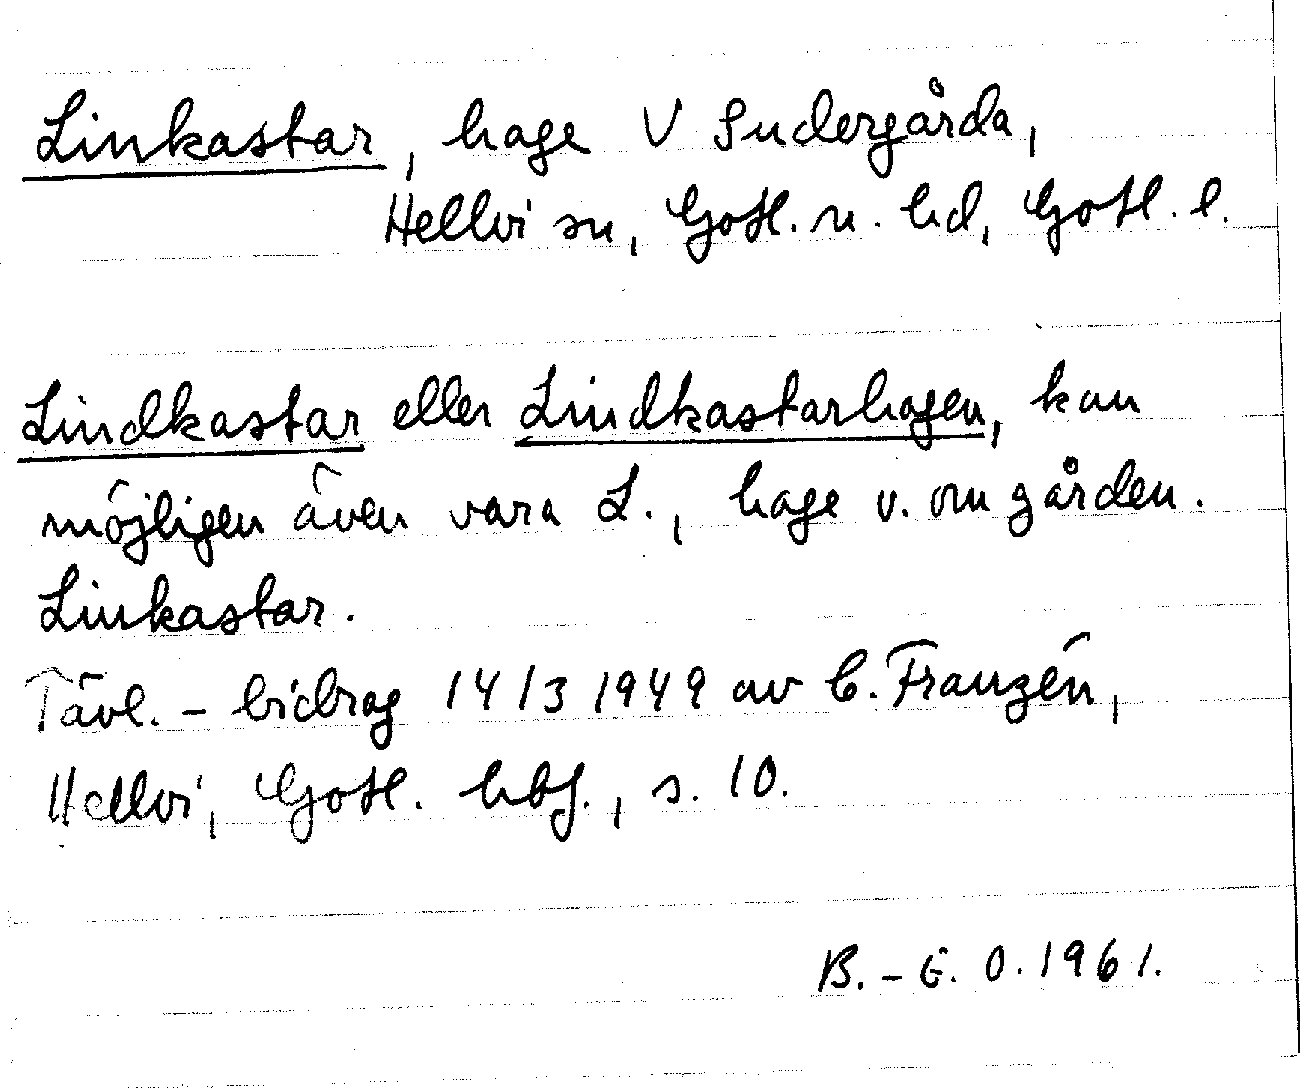 Linkastar, hage V Sudergårda,
Hellvi sn, Gotl. n. hd, Gotl. l.
Lindkastar eller Lindkastarhagen, kan
möjligen även vara L., hage v. om gården.
Linkastar.
Tävl. - bidrag 14/3 1949 av C. Franzén,
Hellvi, Gotl. hbf., s. 10.
B. - G. O. 1961.